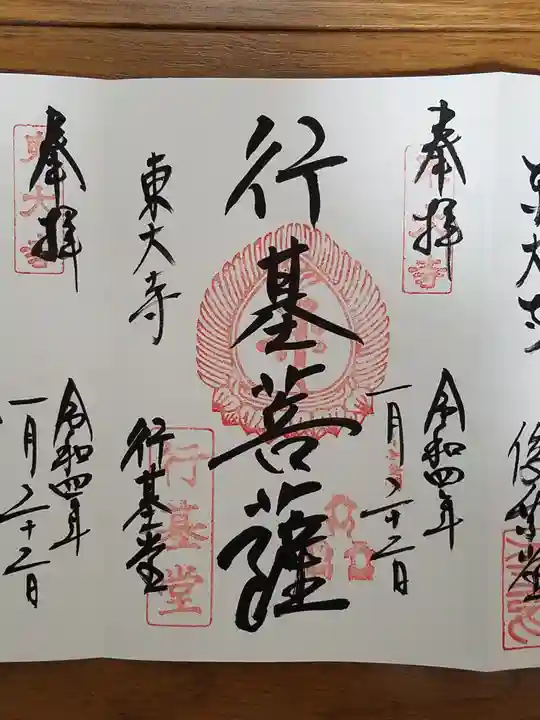 東大寺
俊乗堂
奉拝
東大寺
令和四年
一月二十二日
行基菩薩
東大寺
行基堂
行基堂
奉拝
東大寺
令和四年
一月二十二日